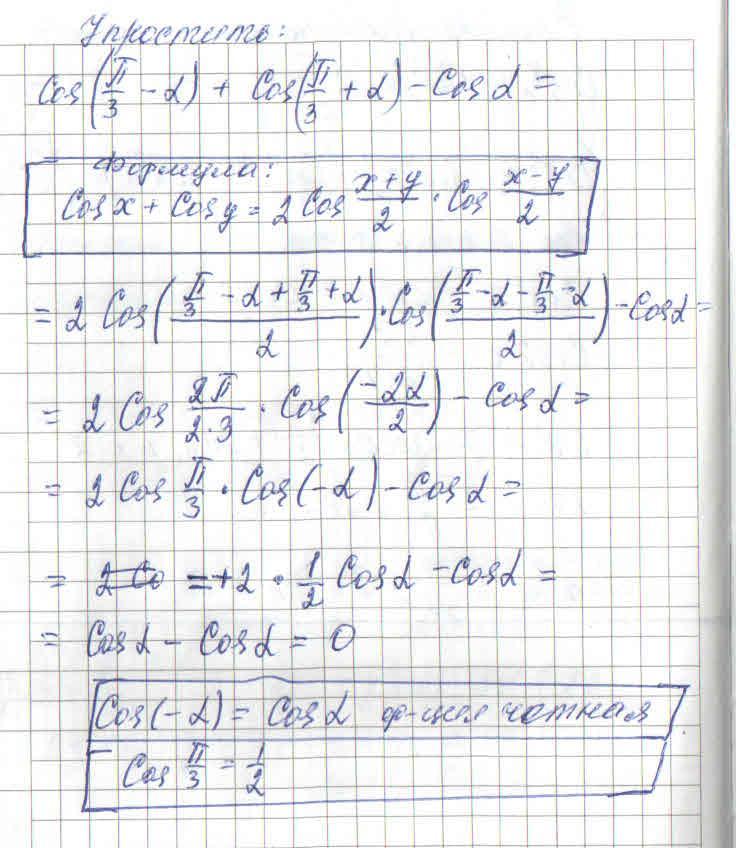 Упростить:
Cos(π/3 - α) + Cos(π/3 + α) - Cos α =
Формула:
Cos x + Cos y = 2 Cos (x+y)/2 · Cos (x-y)/2
= 2 Cos((π/3 - α + π/3 + α)/2) · Cos((π/3 - α - π/3 - α)/2) - Cos α =
= 2 Cos 2π/2·3 · Cos(-2α/2) - Cos α =
= 2 Cos π/3 · Cos(-α) - Cos α =
= 2 Co = +2 · 1/2 Cos α - Cos α =
= Cos α - Cos α = 0
Cos(-α) = Cos α ф-ция чётная
Cos π/3 = 1/2